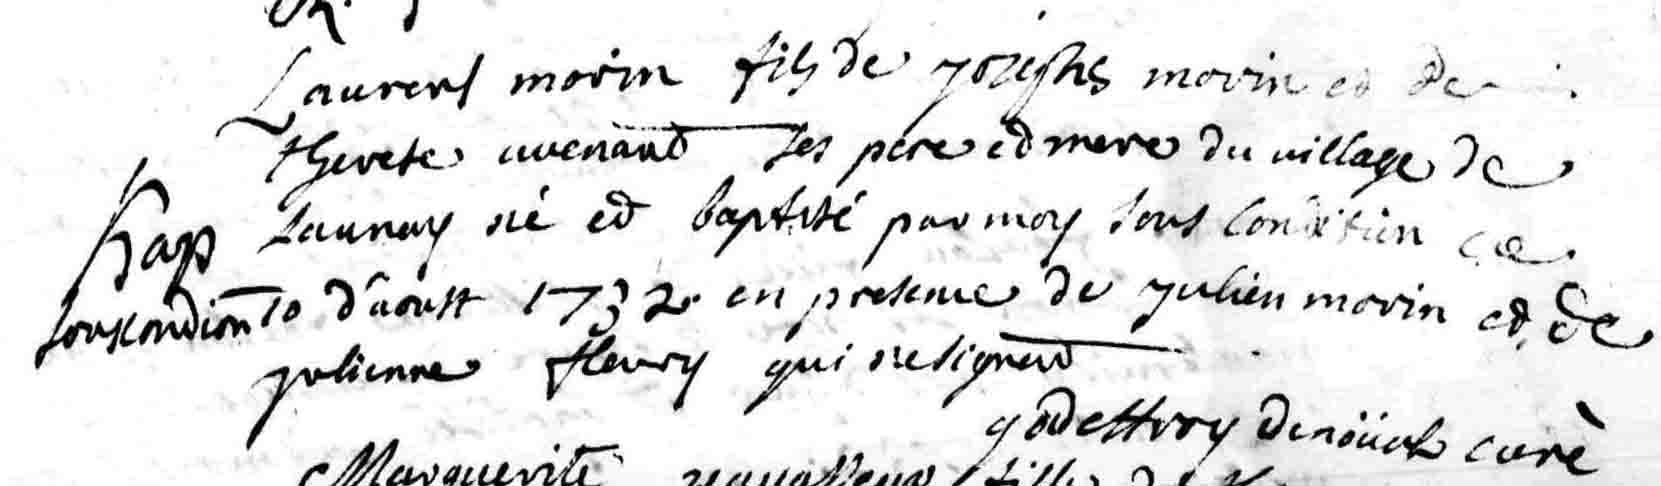 Laurent morin fils de josephs morin et de
therese avenand ses pere et mere du village de
launay né et baptisé par moy sous condition ce
Bap
souscondion 10 d'aoust 1732 en presence de julien morin et de
julienne fleury qui ne signent
godeffroy curé
Marguerite fille de